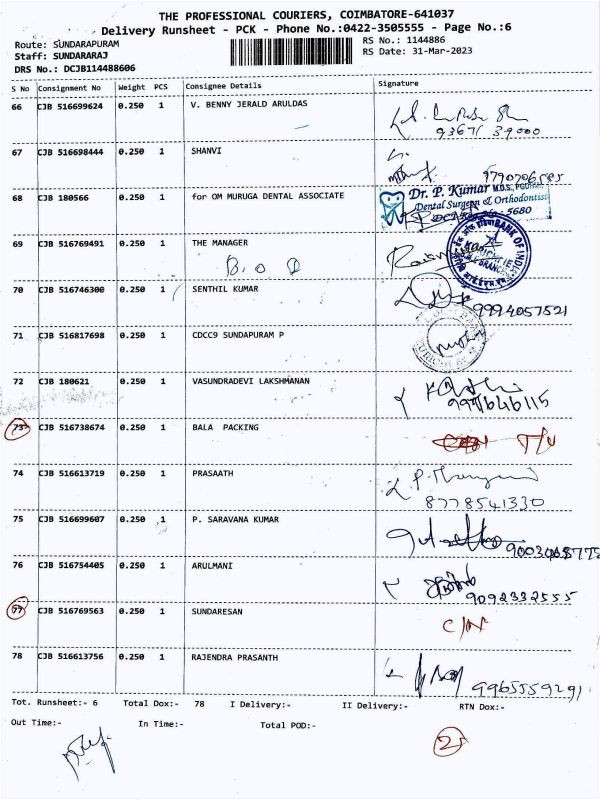 THE PROFESSIONAL COURIERS, COIMBATORE-641037
Delivery Runsheet - PCK - Phone No.:0422-3505555 - Page No.:6
Route: SUNDARAPURAM RS No.: 1144886
Staff: SUNDARARAJ RS Date: 31-Mar-2023
DRS No.: DCJB114488606
S No Consignment No Weight PCS Consignee Details Signature
66 CJB 516699624 0.250 1 V. BENNY JERALD ARULDAS
93671 39000
67 CJB 516698444 0.250 1 SHANVI
9790706585
68 CJB 180566 0.250 1 for OM MURUGA DENTAL ASSOCIATE
Dr. P. Kumar M.D.S.,
Dental Surgeon & Orthodontist
5680
69 CJB 516769491 0.250 1 THE MANAGER
B.O.I
BANK OF INDIA
70 CJB 516746300 0.250 1 SENTHIL KUMAR
9994057521
71 CJB 516817698 0.250 1 CDCC9 SUNDAPURAM P
72 CJB 180621 0.250 1 VASUNDRADEVI LAKSHMANAN
73 CJB 516738674 0.250 1 BALA PACKING
74 CJB 516613719 0.250 1 PRASAATH
8778541330
75 CJB 516699607 0.250 1 P. SARAVANA KUMAR
76 CJB 516754405 0.250 1 ARULMANI
9092332555
77 CJB 516769563 0.250 1 SUNDARESAN
C/N
78 CJB 516613756 0.250 1 RAJENDRA PRASANTH
9965559291
Tot. Runsheet:- 6 Total Dox:- 78 I Delivery:- II Delivery:- RTN Dox:-
Out Time:- In Time:- Total POD:-
2